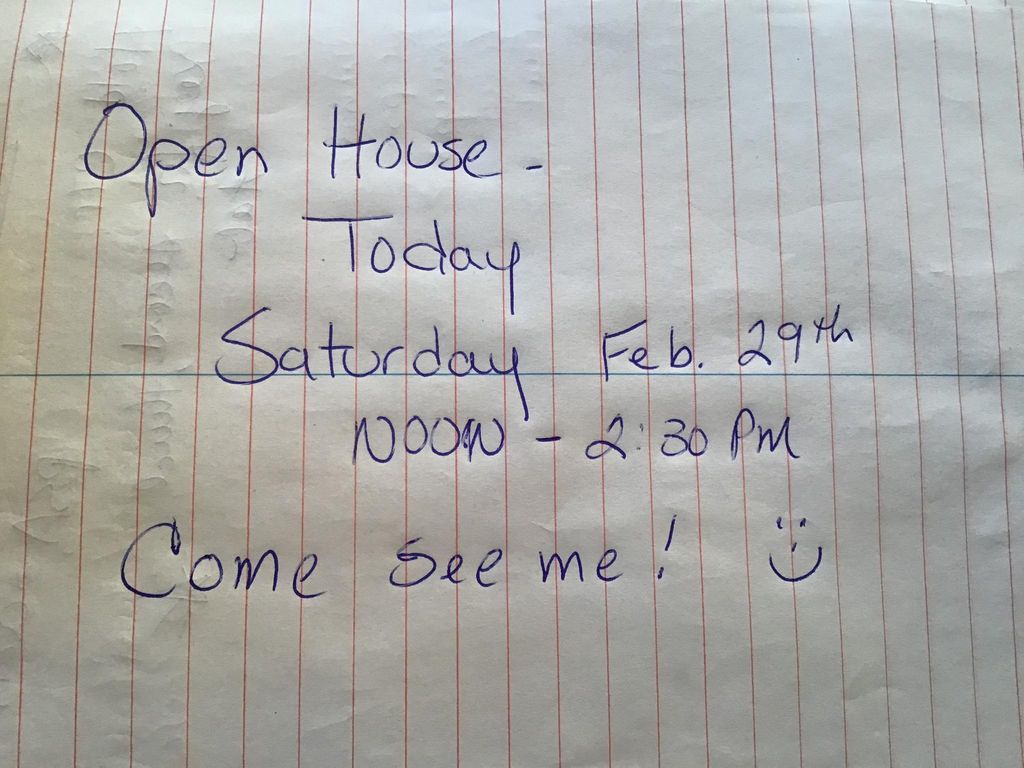 Open House -
Today
Saturday Feb. 29th
NOON - 2:30 PM
Come see me! :)